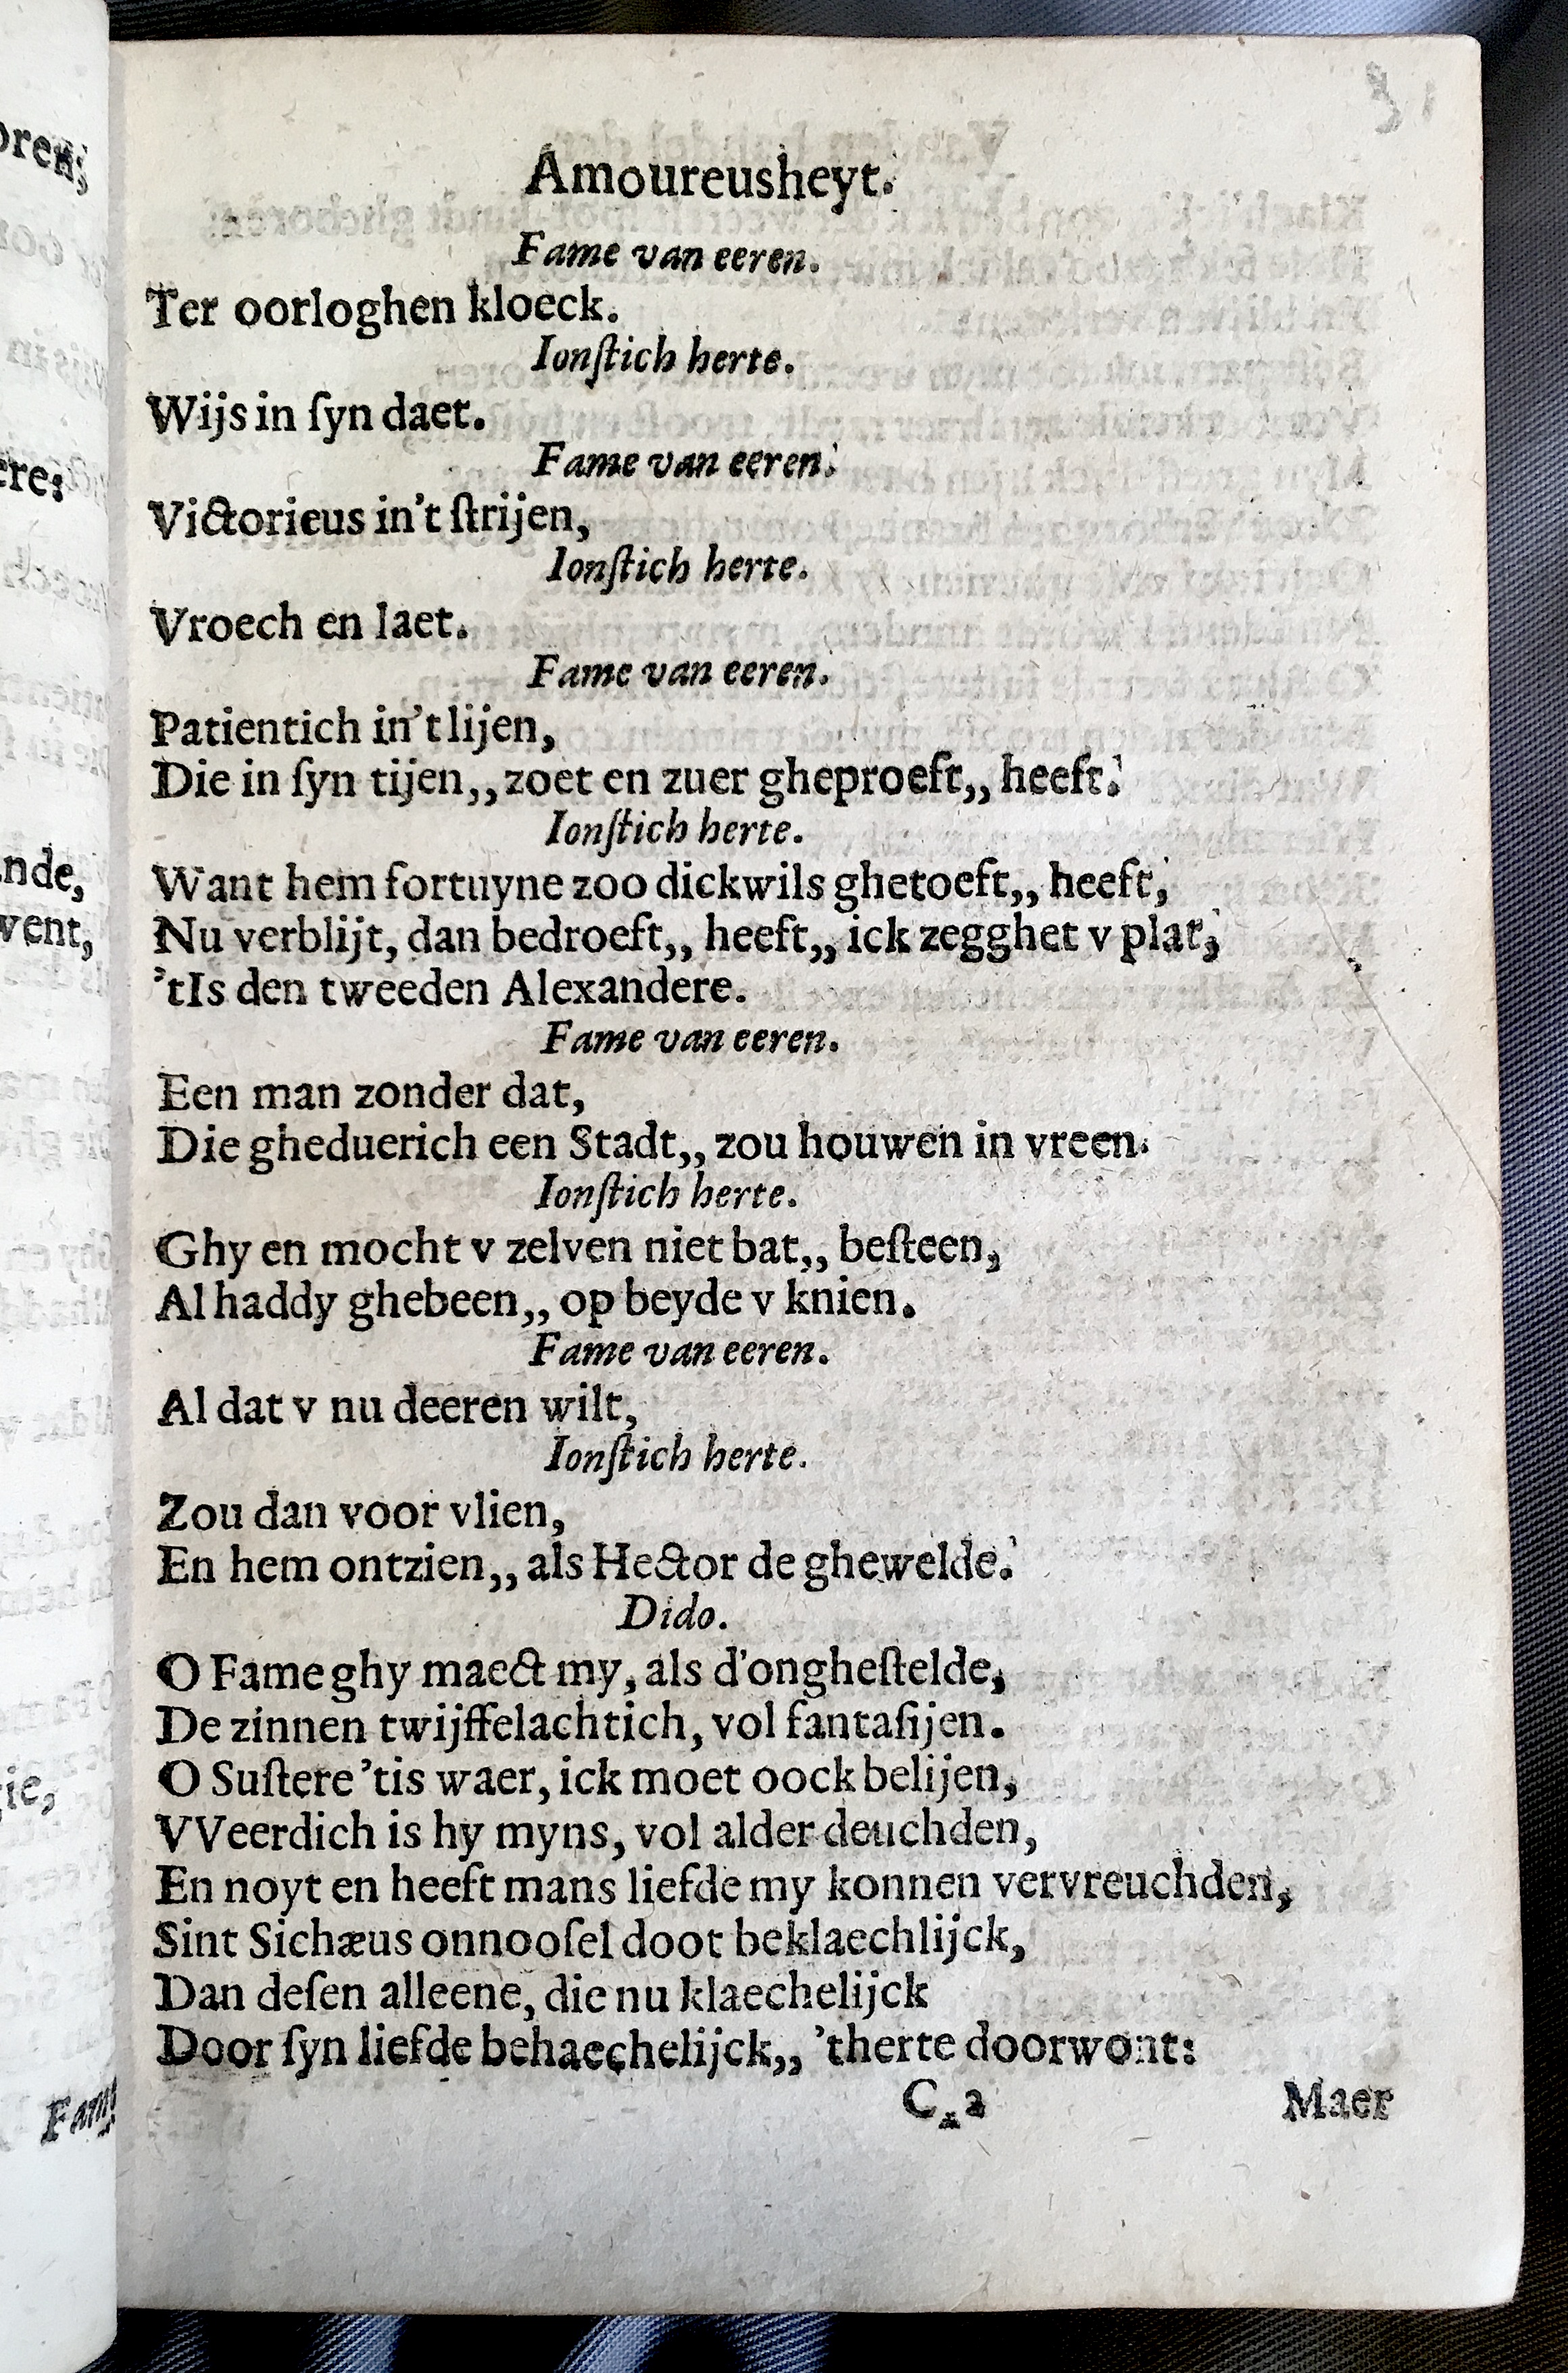 Amoureusheyt.
Fame van eeren.
Ter oorloghen kloeck.
Ionſtich herte.
Wijs in ſyn daet.
Fame van eeren.
Victorieus in't ſtrijen,
Ionſtich herte.
Vroech en laet.
Fame van eeren.
Patientich in't lijen,
Die in ſyn tijen,, zoet en zuer gheproeft,, heeft.
Ionſtich herte.
Want hem fortuyne zoo dickwils ghetoeft,, heeft,
Nu verblijt, dan bedroeft,, heeft,, ick zegghet v plat,
'tIs den tweeden Alexandere.
Fame van eeren.
Een man zonder dat,
Die gheduerich een Stadt,, zou houwen in vreen.
Ionſtich herte.
Ghy en mocht v zelven niet bat,, beſteen,
Al haddy ghebeen,, op beyde v knien.
Fame van eeren.
Al dat v nu deeren wilt,
Ionſtich herte.
Zou dan voor vlien,
En hem ontzien,, als Hector de ghewelde.
Dido.
O Fame ghy maect my, als d'ongheſtelde,
De zinnen twijffelachtich, vol fantaſijen.
O Suſtere 'tis waer, ick moet oock belijen,
VVeerdich is hy myns, vol alder deuchden,
En noyt en heeft mans liefde my konnen vervreuchden,
Sint Sichæus onnooſel doot beklaechlijck,
Dan deſen alleene, die nu klaechelijck
Door ſyn liefde behaechelijck,, 'therte doorwont:
C 2 Maer
oren;
ere:
nde,
vent,
ie,
Fame